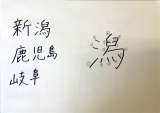 新潟
鹿児島
岐阜
潟